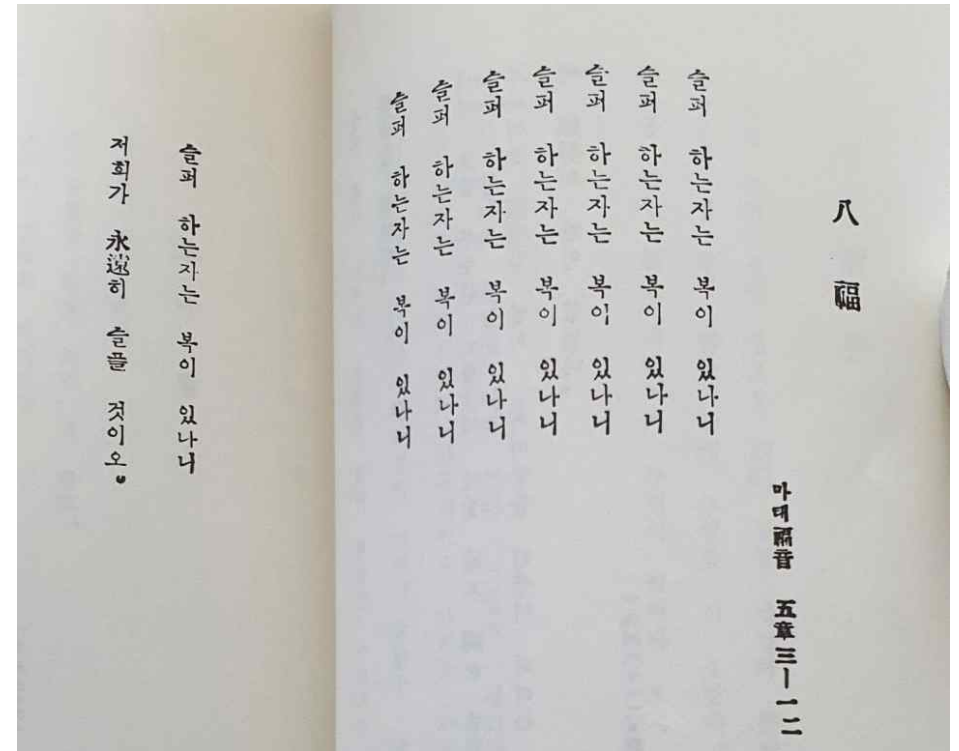 八 福
마태福音 五章三ー一二
슬퍼 하는자는 복이 있나니
슬퍼 하는자는 복이 있나니
슬퍼 하는자는 복이 있나니
슬퍼 하는자는 복이 있나니
슬퍼 하는자는 복이 있나니
슬퍼 하는자는 복이 있나니
슬퍼 하는자는 복이 있나니
슬퍼 하는자는 복이 있나니
저희가 永遠히 슬플 것이오。